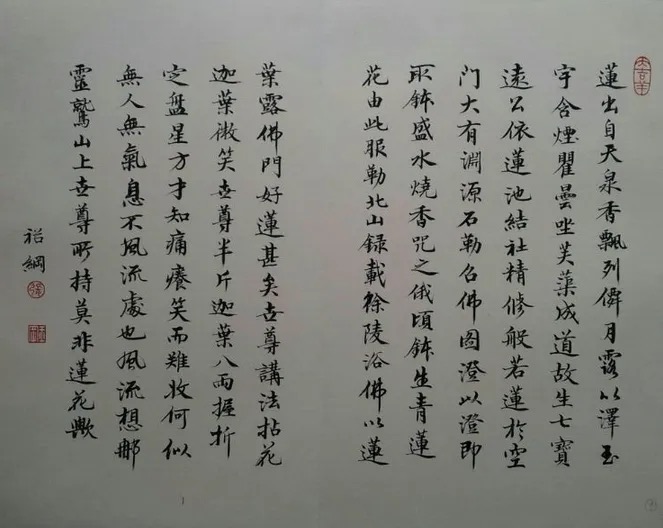 蓮出自天泉香飄列僊月露以澤玉
宇含煙瞿曇坐芙蕖成道故生七寶
遠公依蓮池結社精修般若蓮於空
门大有淵源石勒召佛圖澄以澄即
取鉢盛水燒香咒之俄頃鉢生青蓮
花由此服勒北山録載徐陵浴佛以蓮
葉露佛門好蓮甚矣世尊講法拈花
迦葉微笑世尊半斤迦葉八兩握折
定盤星方才知痛癢笑而難收何似
無人無氣息不風流處也風流想那
靈鷲山上世尊所持莫非蓮花歟
裕綱